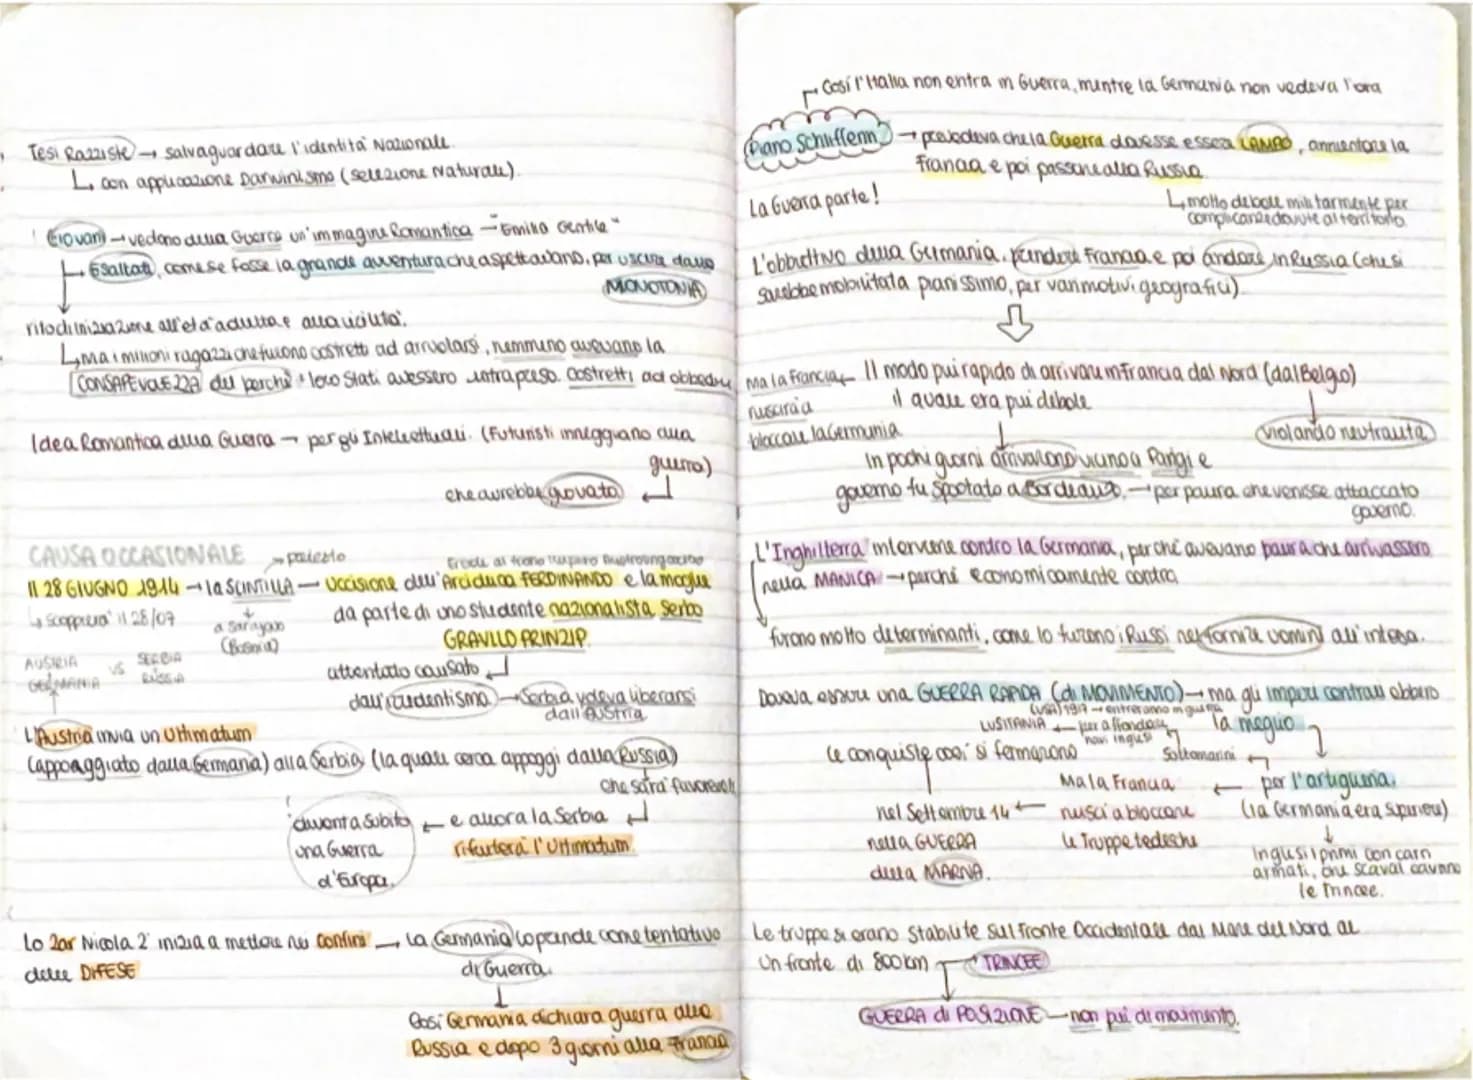 Tesi Razziste → salvaguardare l'identità Nazionale.
↳ con applicazione Darwinismo (selezione Naturale).
Giovani → vedono della Guerra un'immagine Romantica - "Emilio Gentile"
↳ Esaltati, come se fosse la grande avventura che aspettavano, per uscire dalla
MONOTONIA
rito di iniziazione all'età adulta e alla virilità.
↳ Ma i milioni ragazzi che furono costretti ad arruolarsi, nemmeno avevano la
CONSAPEVOLEZZA del perchè i loro Stati avessero intrapreso. Costretti ad obbedire
Idea Romantica della Guerra → per gli Intellettuali. (Futuristi inneggiano alla
guerra)
che avrebbe giovato ↵
CAUSA OCCASIONALE → pretesto
Erede al trono Impero Austroungarico
Il 28 GIUGNO 1914 → la SCINTILLA — Uccisione dell'Arciduca FERDINANDO e la moglie
↳ scoppierà il 28/07
a Sarajevo
(Bosnia)
da parte di uno studente nazionalista Serbo
GRAVLLO PRINZIP.
AUSTRIA GERMANIA VS SERBIA RUSSIA
attentato causato ↵
dall'irredentismo → Serbia voleva liberarsi
dall'Austria
L'Austria invia un Ultimatum
(appoaggiato dalla Germania) alla Serbia (la quale cerca appoggi dalla Russia)
che sarà favorevole
diventa subito ← e allora la Serbia ↵
una Guerra
rifiuterà l'Ultimatum.
d'Europa.
Lo Zar Nicola 2° inizia a mettere nei Confini → La Germania lo prende come tentativo
delle DIFESE
di Guerra.
↓
Così Germania dichiara guerra alla
Russia e dopo 3 giorni alla Francia
Così l'Italia non entra in Guerra, mentre la Germania non vedeva l'ora
Piano Schliffenn → prevedeva che la Guerra dovesse essere LAMPO, annientare la
Francia e poi passare alla Russia
↳ molto debole militarmente per
complicanze dovute al territorio.
La Guerra parte!
L'obbiettivo della Germania, prendere Francia e poi andare in Russia (che si
sarebbe mobilitata pianissimo, per vari motivi geografici).
⇩
Il modo pui rapido di arrivare in Francia dal Nord (dal Belgio)
il quale era pui debole
↓
violando neutralità
Ma la Francia
riuscirà a
bloccare la Germania
In pochi giorni arrivarono vicino a Parigi e
governo fu spostato a Bordeaux, → per paura che venisse attaccato
governo.
L'Inghilterra interviene contro la Germania, perché avevano paura che arrivassero
nella MANICA → perché economicamente contro
furono molto determinanti, come lo furono i Russi nel fornire uomini all'intesa.
Doveva essere una GUERRA RAPIDA (di MOVIMENTO) → ma gli imperi centrali ebbero
la meglio
(USA) 1917 → entreranno in guerra
LUSITANIA ← per affondare
navi inglesi
Sottomarini ←
Le conquiste così si fermarono
per l'artiglieria.
(la Germania era superiore)
Ma la Francia ←
riuscì a bloccare
le Truppe tedesche
nel Settembre 14 ←
nella GUERRA
della MARNA.
↓
Inglesi i primi con carri
armati, che scavalcavano
le trincee.
Le truppe si erano stabilite sul fronte Occidentale dal Mare del Nord al
Un fronte di 800km → TRINCEE
GUERRA di POSIZIONE → non pui di movimento.